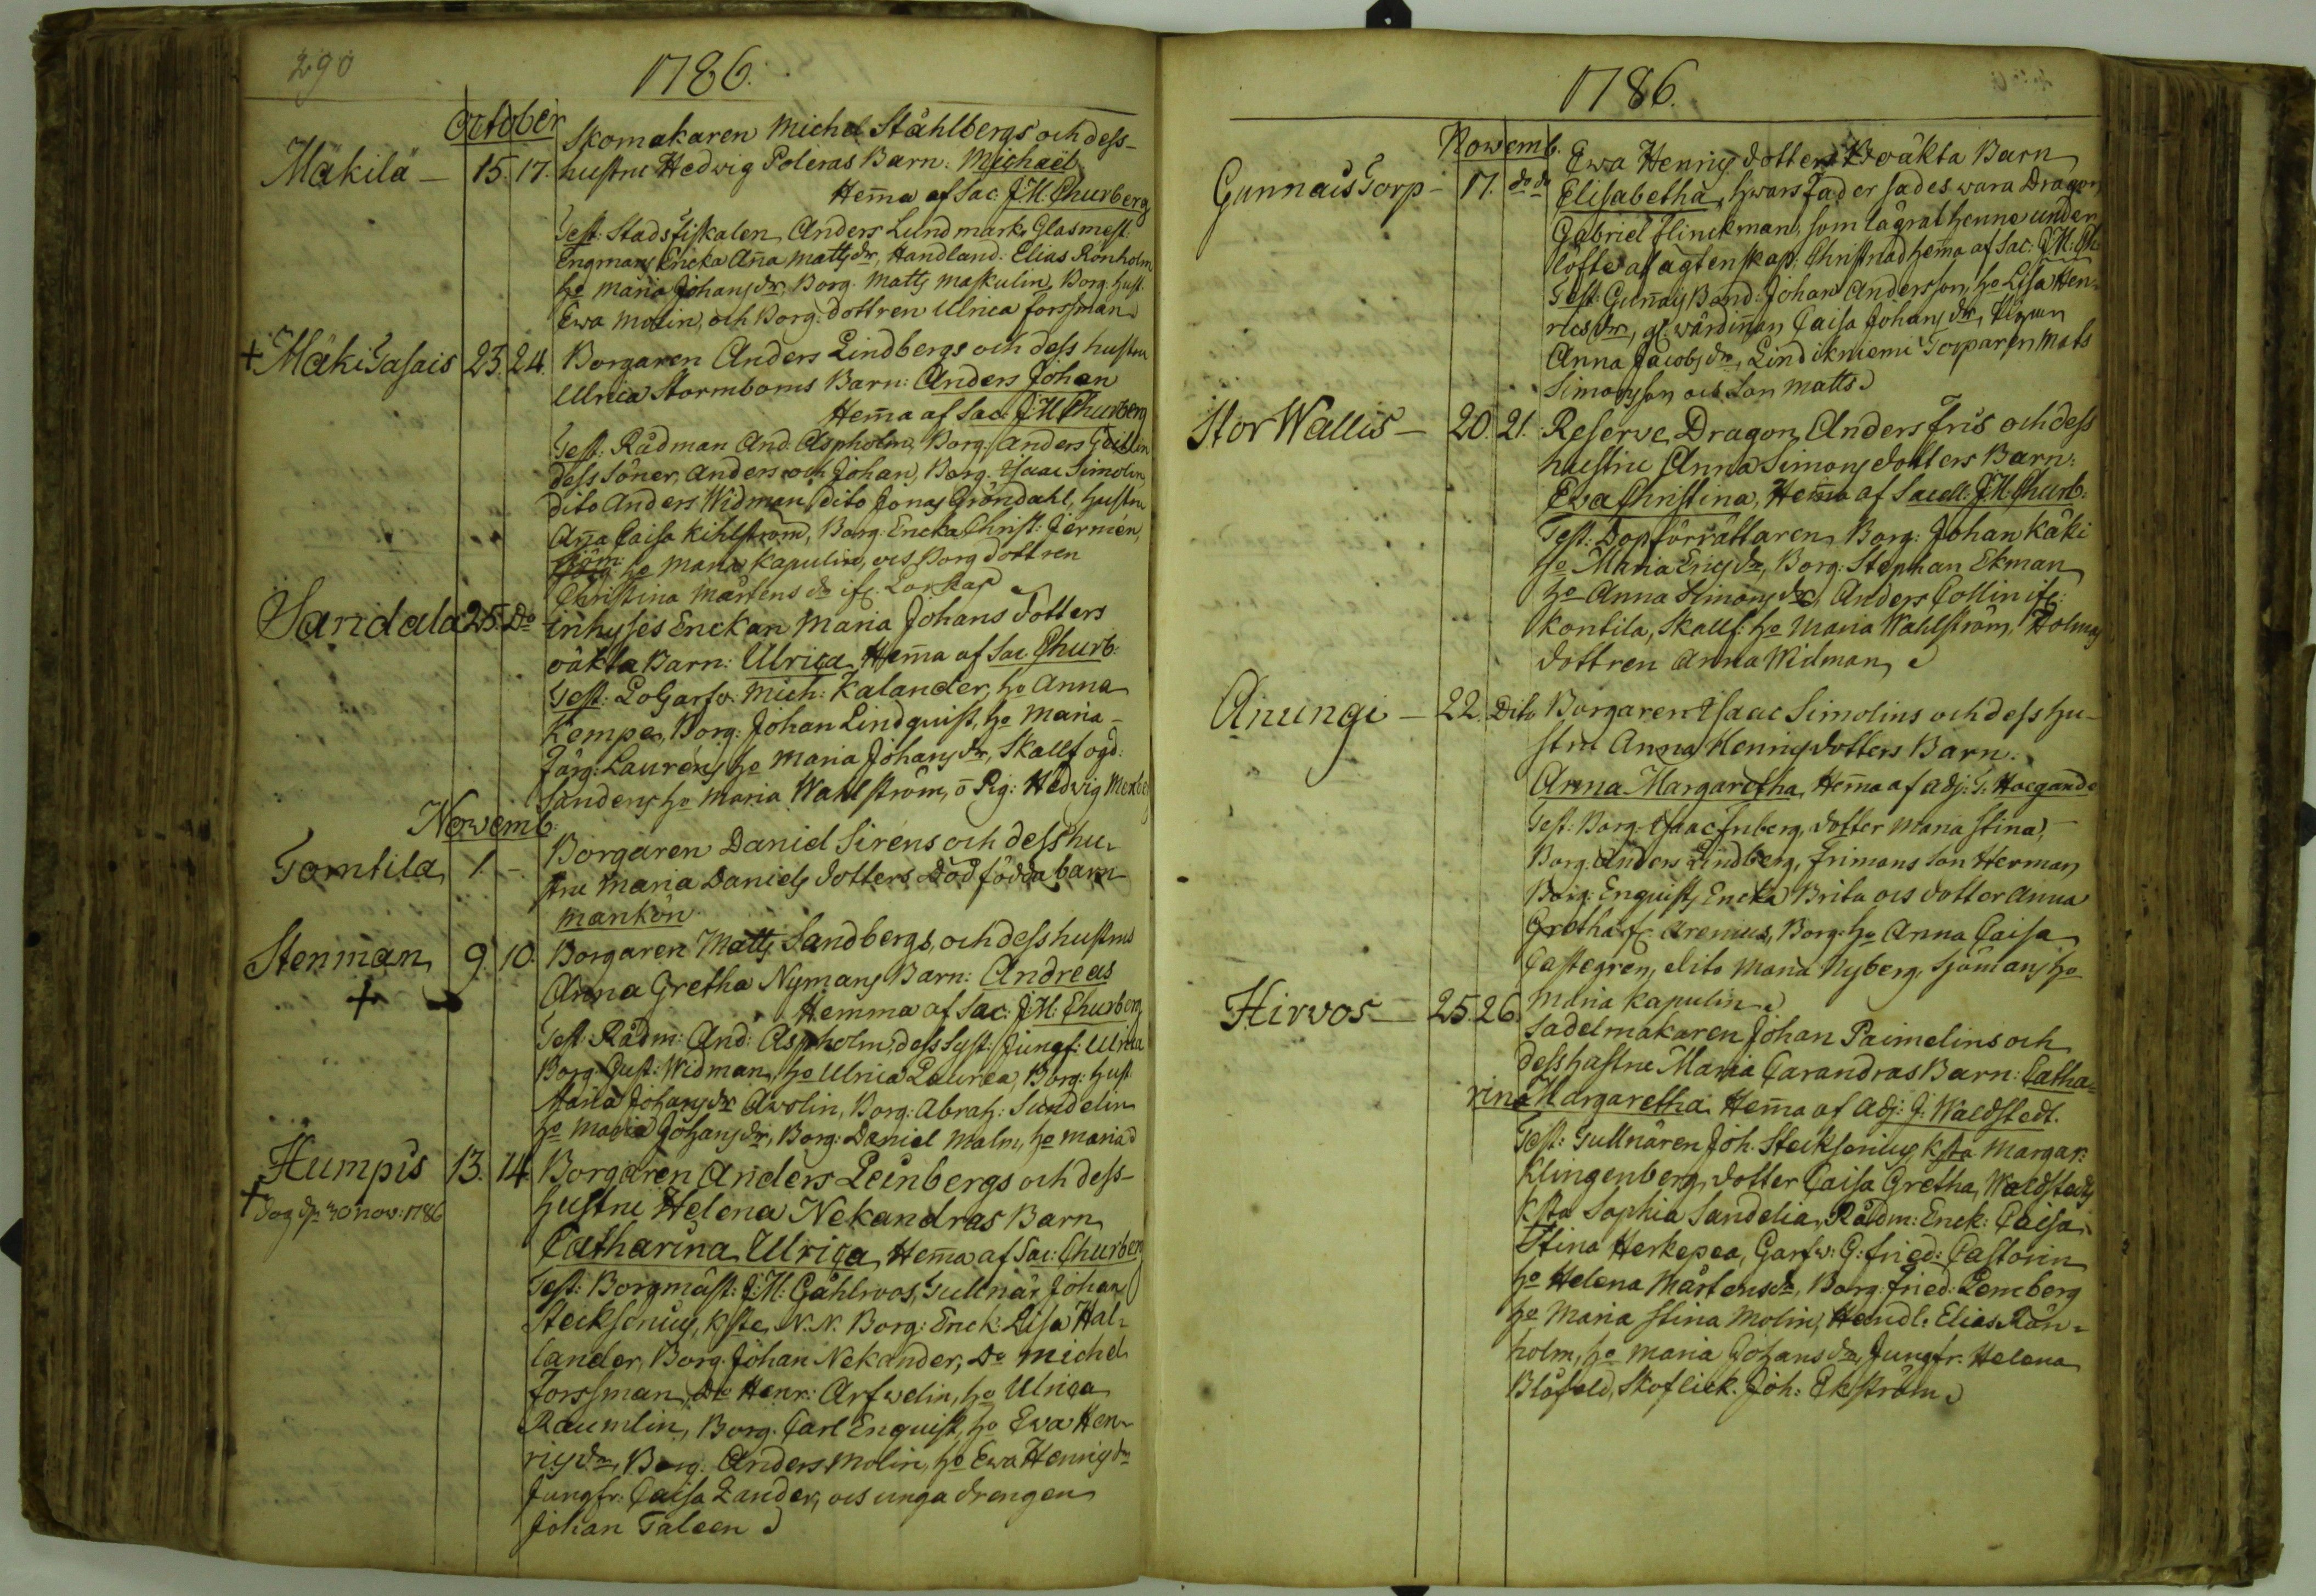 290
1786.
October
Mäkilä — 15. 17. Skomakaren Michel Ståhlbergs och dess-
hustru Hedwig Poleras Barn: Michael
Hem̄a af Sac: J:H: Churberg
Test: Stadsfiskalen Anders Lundmark, Glasmest:
Engmans Encka An̄a Mattsdr, Handland: Elias Rönholm
ho Maria Johansdr, Borg. Matts Maskulin, Borg. hust.
Ewa Molin, och Borg: dottren Ulrica Forssman
+ Mäki Sasais 23. 24. Borgaren Anders Lindbergs och dess hustru
Ulrica Stormboms Barn: Anders Johan
Hem̄a af Sac: J:H Churberg
Test: Rådman And. Aspholm, Borg: Anders
dess Söner, Anders och Johan, Borg. Isaac Simolin,
dito Anders Widman, dito Jonas Gröndahl, hustru
An̄a Caisa Kihlström, Borg: Encka Christ: Jermén,
ho Maria Kapulin, ocs Borg dottren
Christina Mårtens dr
Sandala 25. Do Inhyses Enckan Maria Johans dotters
oäkta Barn: Ulrica Hem̄a af Sac. Churb:
Test: Logarfv. Mich: Kalander, ho Anna
Kempe, Borg: Johan Lindquist, ho Maria -
Färg: Lauréns ho Maria Johansdr, Skallfogd:
Sandens ho Maria Wahlström, ō Pig: Hedvig
Nowemb:
Tomtila 1. -. Borgaren Daniel Sirens och dess hu-
stru Maria Daniels dotters Dödfödda barn
mankön
Stenman 9. 10. Borgaren Matts Sandbergs, och dess hustrus
+ Anna Gretha Nymans Barn: Andreas
Hemma af Sac: J:H: Churberg
Test: Rådm: And: Aspholm, dess Syst: Jungf: Ulrica
Borg: Gust: Widman, ho Ulrica Laurea, Borg: hust
Maria Johansdr Awolin, Borg: Abrah: Sundelin
ho Maria Johansdr, Borg: Daniel Malm, ho Maria
Humpis 13. 14. Borgaren Anders Leinbergs och dess-
+ dog d. 30 nov: 1786 hustru Helena Nekandras Barn
Catharina Ulrica, Hem̄a af Sac: Churberg
Test: Borgmäst: J:H: Gåhlroos, Tullnär Johan
Stecksenius, Ksta N.N. Borg: Enck: Lisa Hal-
lander, Borg: Johan Nekander, Do Michel
Forssman, Do Henr: Arfwelin, ho Ulrica
Raumlin, Borg. Carl Enquist, ho Ewa Hen-
ricsdr, Borg. Anders Molin, ho Ewa Henricsdr
Jungfr: Caisa Zander, ocs unga drengen
Johan Taleen
1786.
Nowemb.
Gunnais Torp - 17. do do Ewa Henrics dotters oäkta Barn
Elisabetha, hwars Fader sades wara Dragon
Gabriel Flinckman, som lägrat henne under
löfte af ägtenskap: Christnad hem̄a af Sac: J:H: Ch
Test: Gun̄ais Bond: Johan Andersson, ho Lisa Hen-
ricsdr, gl. wärdin̄an Caisa Johansdr, Pigan
Anna Jacobsdr, Lindikniemi Torparen Mats
Simonsson ocs Son Matts
Stor Wallis — 20. 21. Reserve Dragon Anders Fris och dess
hustru Anna Simons dotters Barn:
Ewa Christina, Hem̄a af Sacell: J:H: Churb:
Test: Dopförrättaren, Borg: Johan Käki
ho Maria Ericsdr, Borg: Stephan Ekman
ho Anna Simonsdr, Anders Collin
Kontila, Skallf: ho Maria Wahlström,
dottren Anna Widman,
Anungi — 22. Dito Borgaren Isaac Simolins och dess hu-
stru Anna Henrics dotters Barn:
Anna Margaretha, Hem̄a af Adj: Hoegande
Test: Borg: Isaac Friberg, dotter Maria Stina,
Borg. Anders Lindberg, Frimans Son Herman
Borg: Enquists Encka Brita ocs dotter Anna
Gretha, Arenius, Borg: ho Anna Caisa
Castegren, dito Maria Nyberg, Sjömans ho
Maria Kapulin
Hirvos — 25. 26. Sadelmakaren Johan Paimelins och
dess hustru Maria Carandras Barn: Catha-
rina Margaretha Hem̄a af Adj: J: Waldstedt.
Test: Tullnären Joh. Stecksenius, Ksta Margar:
Klingenberg, dotter Caisa Gretha, Waldstedts
Ksta Sophia Sandelia, Rådm: Enck: Caisa
Stina Herkepea, Garfv: G: Fried: Castorin
ho Helena Mårtensdr, Borg: Fried: Lemberg
ho Maria Stina Molin, Handl: Elias Rön-
holm, ho Maria Johansdr, Jungfr. Helena
Blåfeld, Skoflick. Joh: Ekström